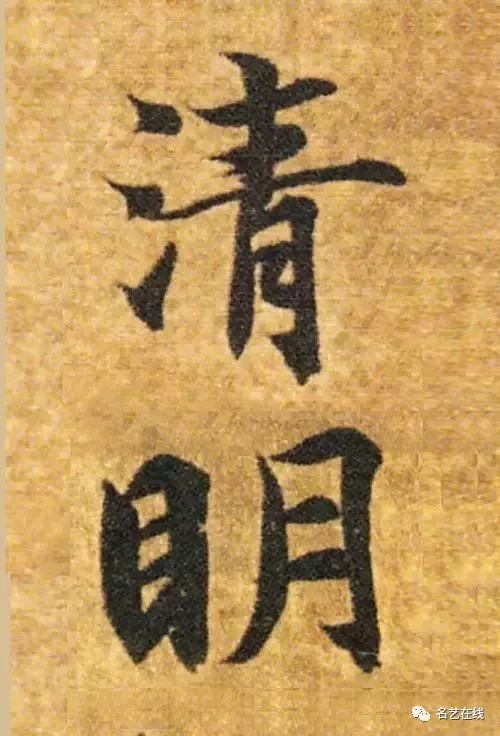 清
明
名艺在线